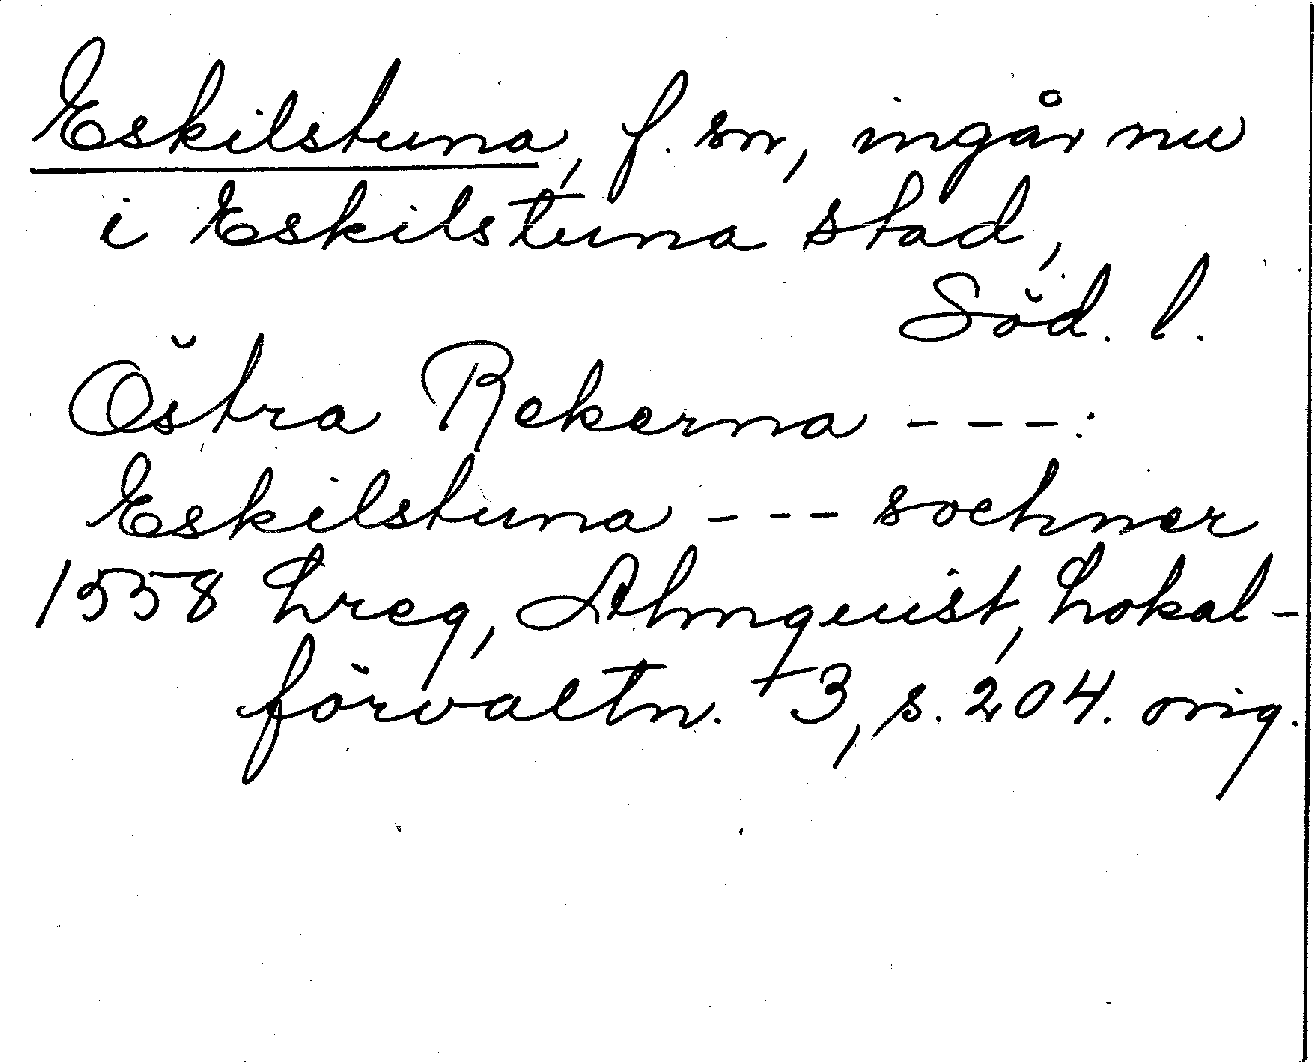 Eskilstuna, f. sn, ingår nu
i Eskilstuna stad,
Söd. l.
Östra Rekerna ---:
Eskilstuna --- sochner
1558 Lreg, Almquist, Lokal-
förvaltn. 3, s. 204. orig.